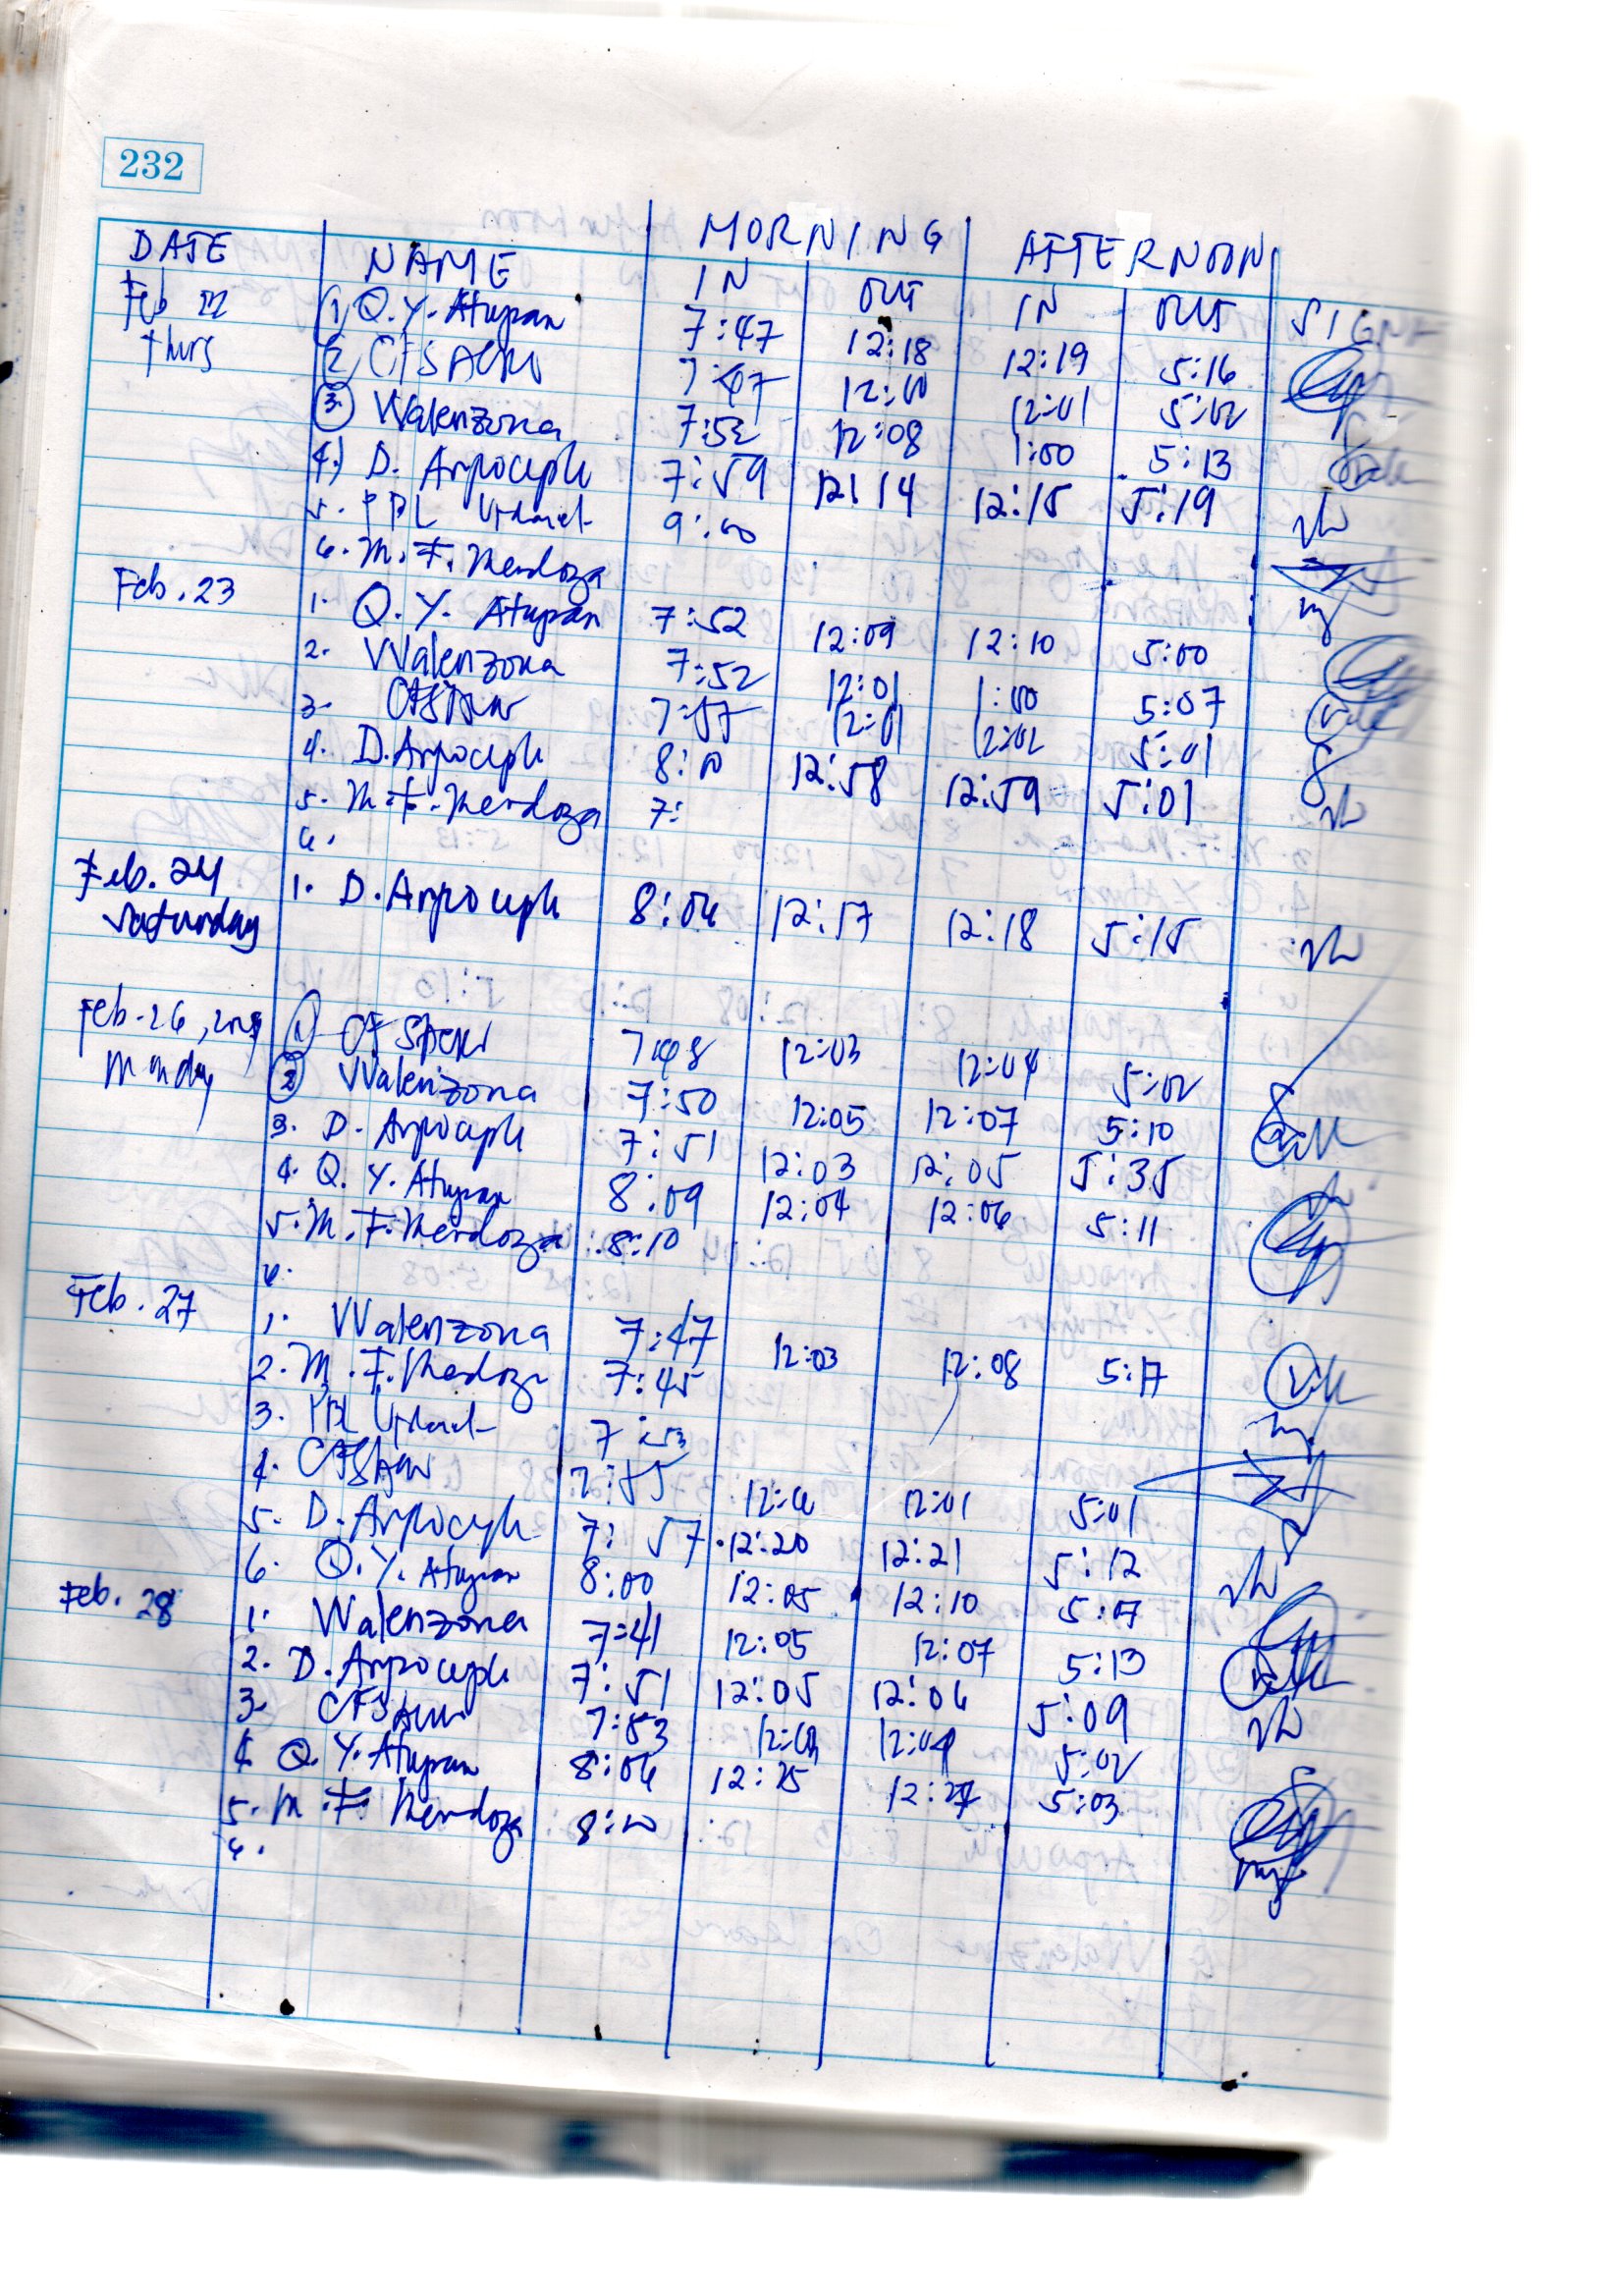 232
DATE NAME MORNING AFTERNOON
IN OUT IN OUT SIGN
Feb 22 1) Q.Y. Atupan 7:47 12:18 12:19 5:16
thurs 2) 7:47 12:00 12:01 5:02
3. Walenzona 7:52 12:08 1:00 5:13
4.) D. Arpoceph 7:59 12:14 12:15 5:19
5. PBL 9:00
6. M. F. Mendoza
Feb. 23 1. Q. Y. Atupan 7:52 12:09 12:10 5:00
2. Walenzona 7:52 12:01 1:00 5:07
3. 7:57 12:01 12:02 5:01
4. D. Arpoceph 8:00 12:58 12:59 5:01
5. M. F. Mendoza 7:
6.
Feb. 24 1. D. Arpoceph 8:06 12:17 12:18 5:15
Saturday
Feb. 26, 1. 12:03 12:04 5:02
Monday 2 Walenzona 7:50 12:05 12:07 5:10
3. D. Arpoceph 7:51 12:03 12:05 5:35
4. Q. Y. Atupan 8:09 12:04 12:06 5:11
5. M. F. Mendoza 8:10
6.
Feb. 27 1. Walenzona 7:47 12:03 12:08 5:17
2. M. F. Mendoza 7:45
3. PBL 7:53
4. 7:55 12:00 12:01 5:01
5. D. Arpoceph 7:57 12:20 12:21 5:12
6. Q. Y. Atupan 8:00 12:05 12:10 5:07
Feb. 28 1. Walenzona 7:41 12:05 12:07 5:13
2. D. Arpoceph 7:51 12:05 12:06 5:09
3. 7:53 5:02
4. Q. Y. Atupan 8:06 12:25 12:27 5:03
5. M. F. Mendoza 8:00
6.